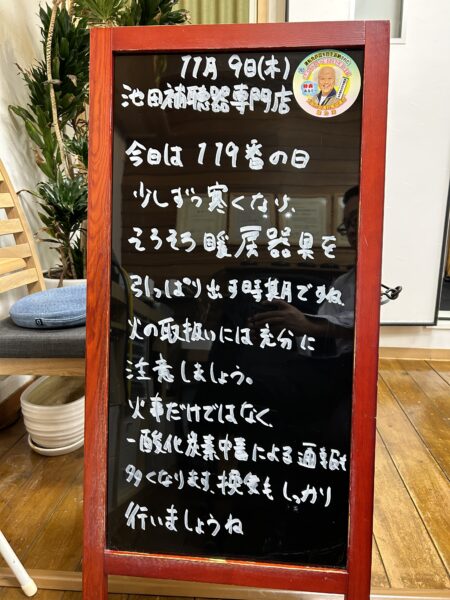 11月9日(木)
池田補聴器専門店
今日は119番の日
少しずつ寒くなり、
そろそろ暖房器具を
引っぱり出す時期ですね
火の取扱いには充分に
注意しましょう。
火事だけではなく
一酸化炭素中毒による通報も
多くなります。換気もしっかり
行いましょうね